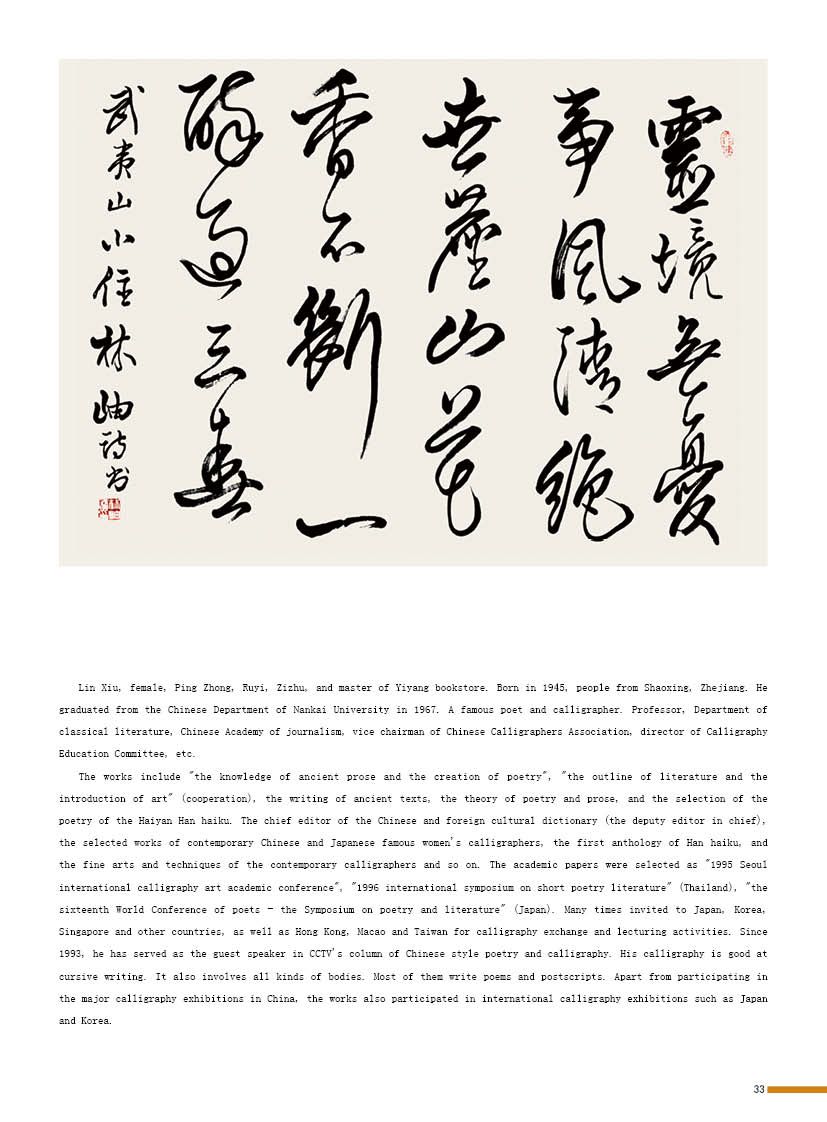 靈境無憂
事風清絶
世塵山花
香不斷一
醉過三春
武夷山小住林岫詩書
Lin Xiu, female, Ping Zhong, Ruyi, Zizhu, and master of Yiyang bookstore. Born in 1945, people from Shaoxing, Zhejiang. He
graduated from the Chinese Department of Nankai University in 1967. A famous poet and calligrapher. Professor, Department of
classical literature, Chinese Academy of journalism, vice chairman of Chinese Calligraphers Association, director of Calligraphy
Education Committee, etc.
The works include "the knowledge of ancient prose and the creation of poetry", "the outline of literature and the
introduction of art" (cooperation), the writing of ancient texts, the theory of poetry and prose, and the selection of the
poetry of the Haiyan Han haiku. The chief editor of the Chinese and foreign cultural dictionary (the deputy editor in chief),
the selected works of contemporary Chinese and Japanese famous women's calligraphers, the first anthology of Han haiku, and
the fine arts and techniques of the contemporary calligraphers and so on. The academic papers were selected as "1995 Seoul
international calligraphy art academic conference", "1996 international symposium on short poetry literature" (Thailand), "the
sixteenth World Conference of poets - the Symposium on poetry and literature" (Japan). Many times invited to Japan, Korea,
Singapore and other countries, as well as Hong Kong, Macao and Taiwan for calligraphy exchange and lecturing activities. Since
1993, he has served as the guest speaker in CCTV's column of Chinese style poetry and calligraphy. His calligraphy is good at
cursive writing. It also involves all kinds of bodies. Most of them write poems and postscripts. Apart from participating in
the major calligraphy exhibitions in China, the works also participated in international calligraphy exhibitions such as Japan
and Korea.
33